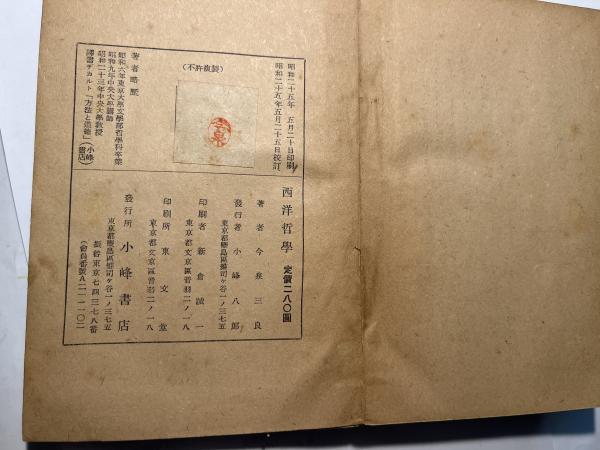 昭和二十五年 五月二十日印刷
昭和二十五年五月二十五日校訂
(不許複製)
今泉
著者略歴
昭和六年東京大學文學部哲學科卒業
昭和九年中央大學講師
昭和二十三年中央大學教授
譯書デカルト「方法と道德」(小峰書店)
西洋哲學 定價二八〇圓
著者 今泉三良
發行者 小峰八郎
東京都豐島區雜司ヶ谷一ノ三七五
印刷者 新倉誠一
東京都文京區音羽二ノ一八
印刷所 東文堂
東京都文京區音羽二ノ一八
發行所 小峰書店
東京都豐島區雜司ヶ谷一ノ三七五
振替東京七四三七八番
(會員番號A二一一〇二)